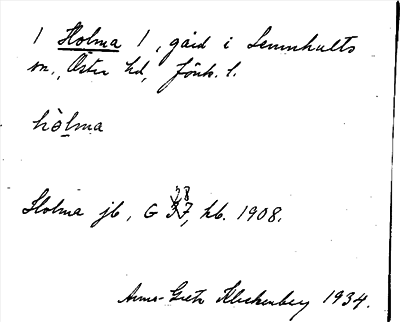 1 Holma 1, gård i Lemnhults
sn., Östra hd, Jönk. l.
hòlma
Holma jb, G 37, kb. 1908.
28
Anna-Greta Kleckenberg 1934.